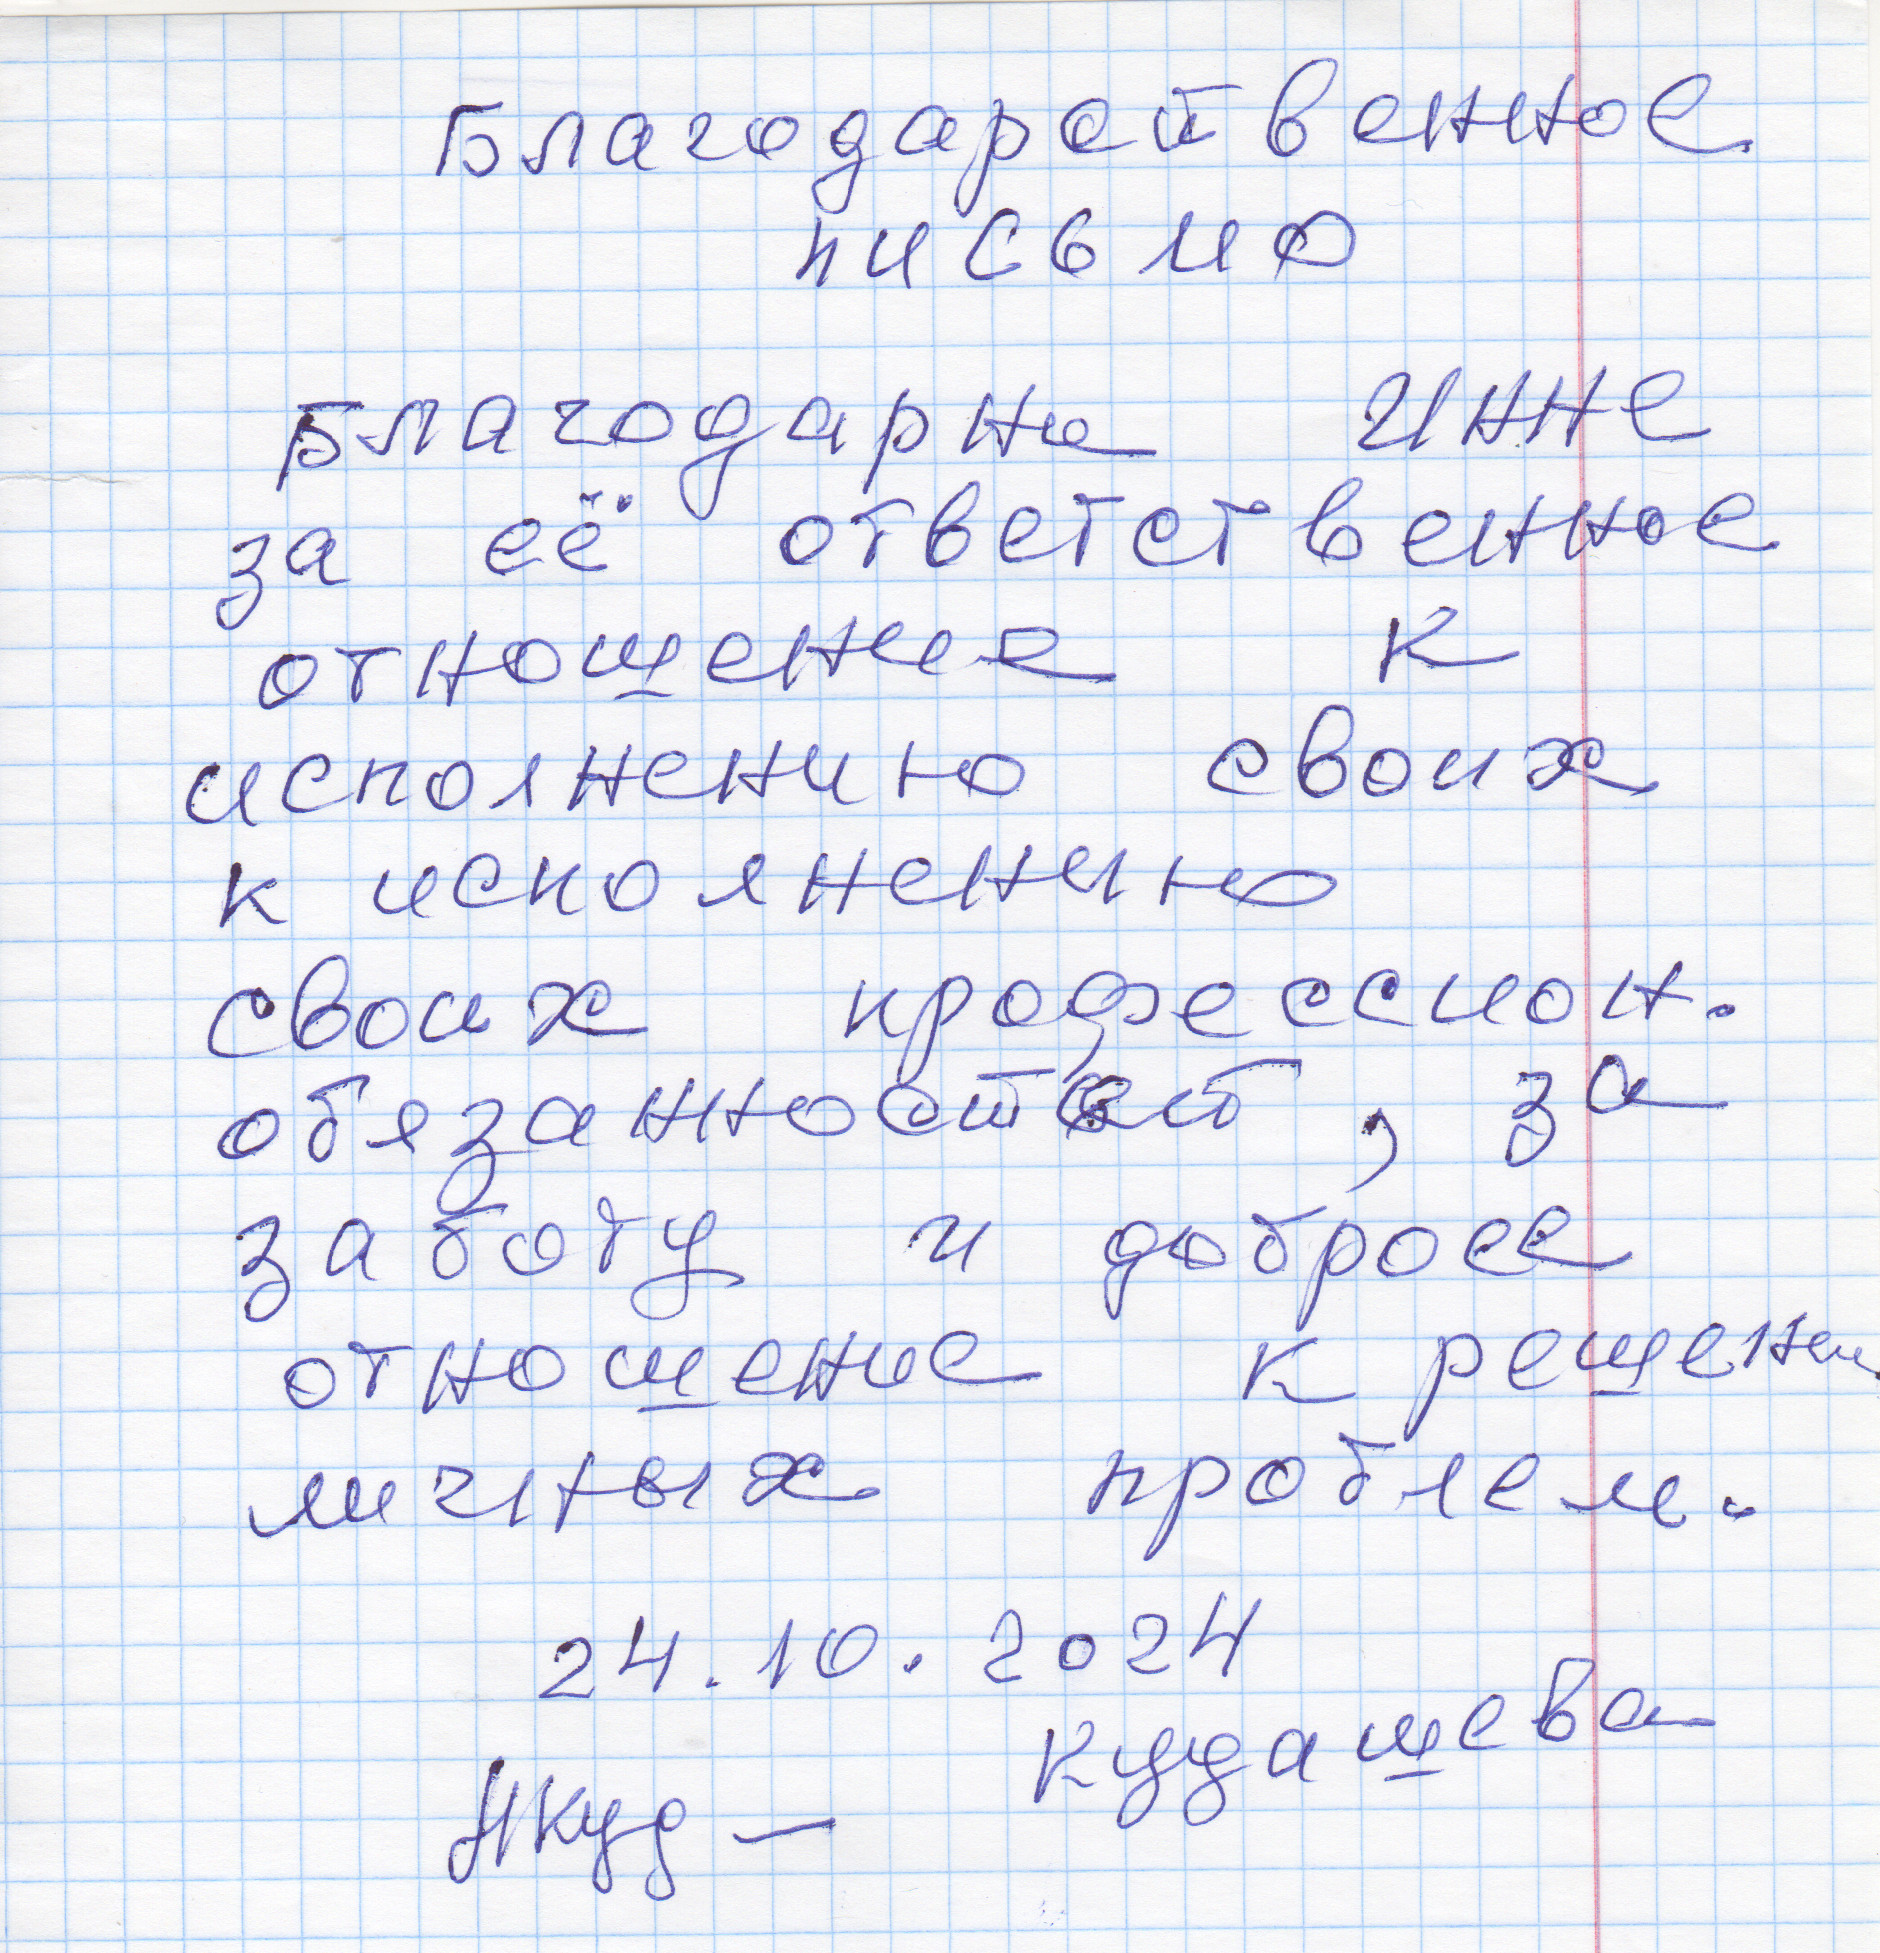 Благодарственное
письмо
Благодарна Инне
за её ответственное
отношение к
исполнению своих
к исполнению
своих профессион.
обязанностей, за
заботу и доброе
отношение к решени
личных проблем.
24.10.2024
Кудашева
НКуд